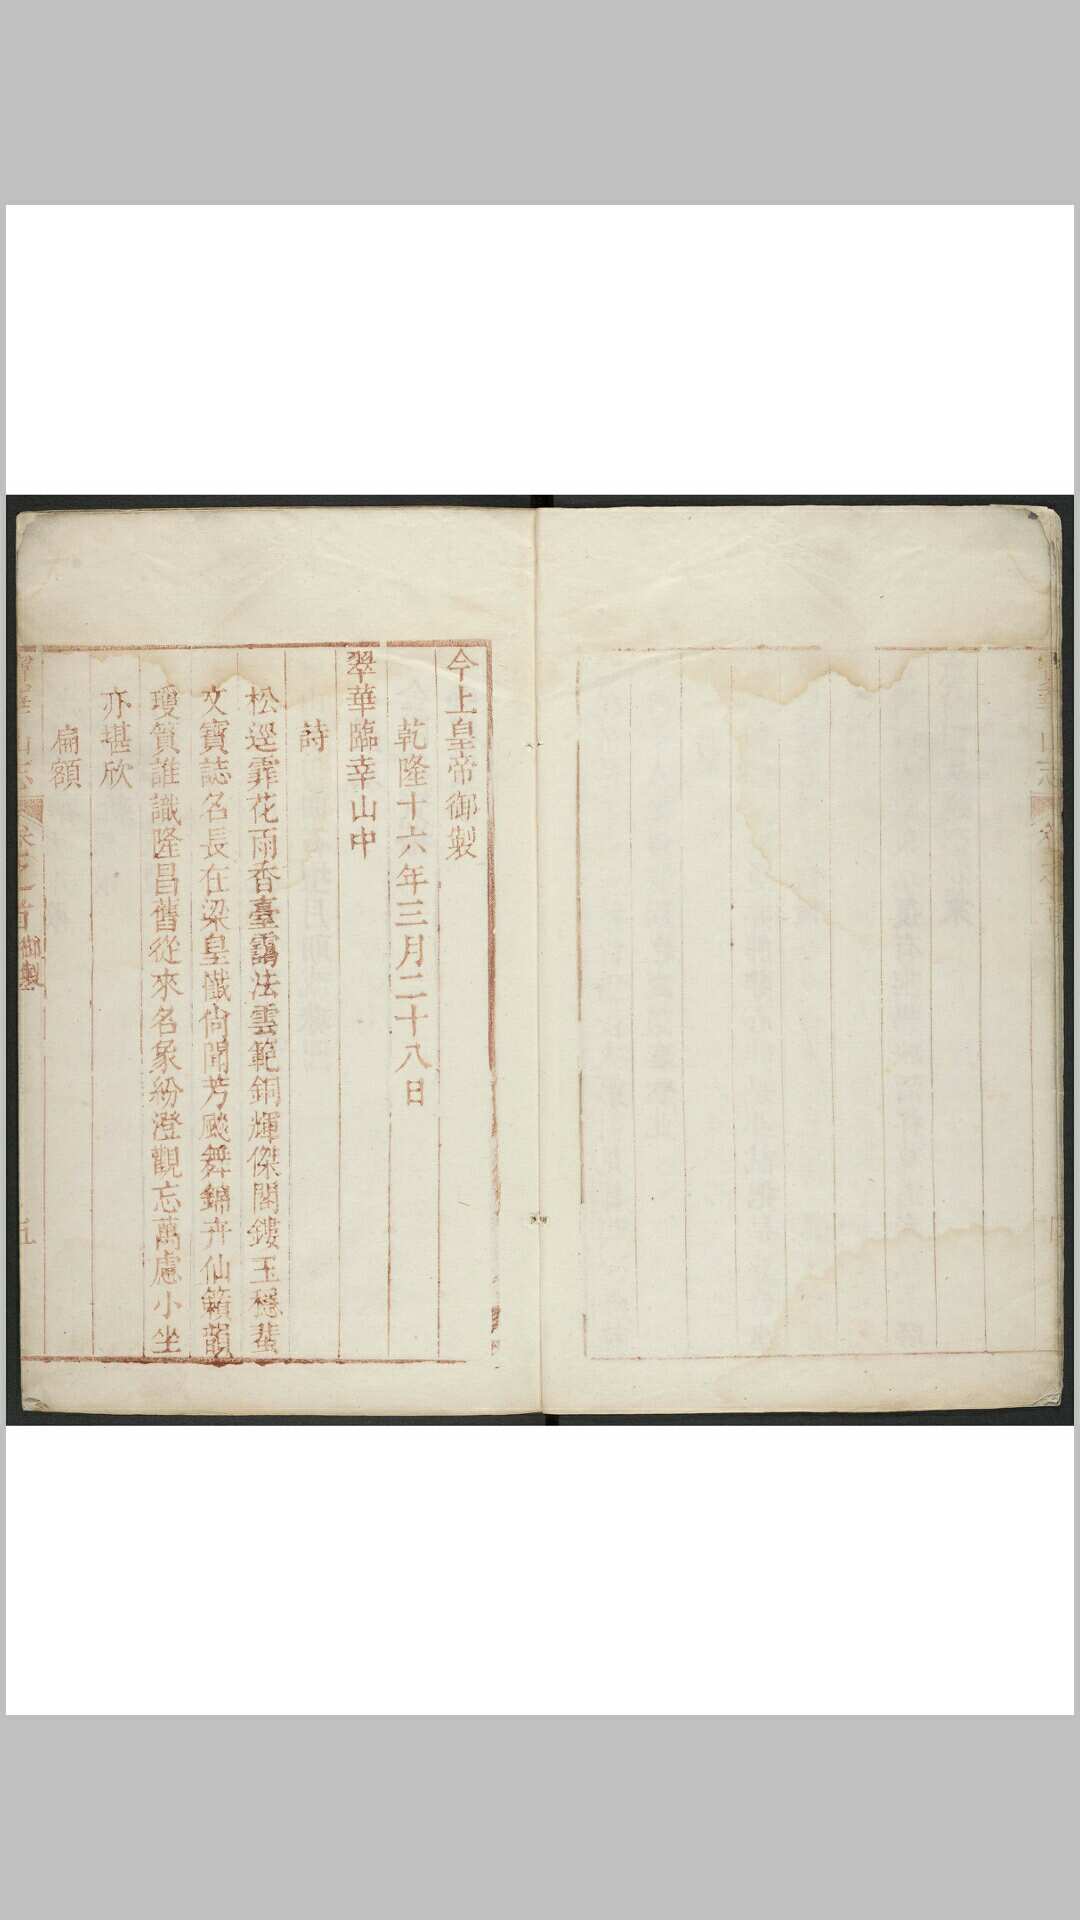 今上皇帝御製
乾隆十六年三月二十八日
翠華臨幸山中
詩
松逕霏花雨香臺靄法雲範銅輝傑閣鏤玉穩蜚
文寶誌名長在梁皇懺尙聞芳飈舞錦卉仙籟韻
瓊篔誰識隆昌舊從來名象紛澄觀忘萬慮小坐
亦堪欣
扁額
華山志
卷之首
御製
五